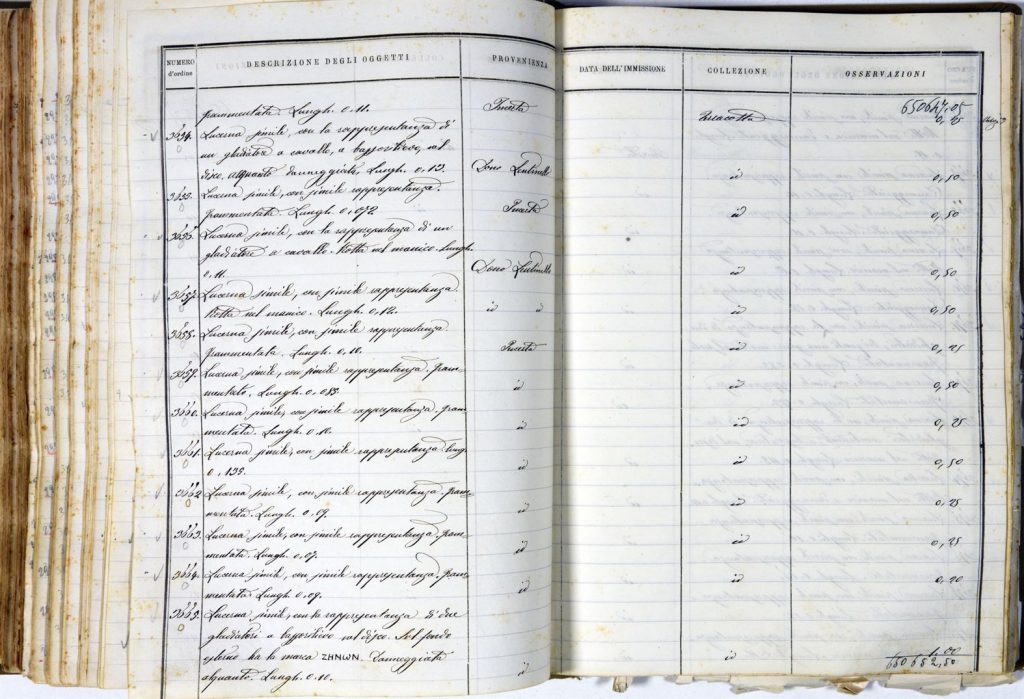 NUMERO d'ordine DESCRIZIONE DEGLI OGGETTI PROVENIENZA DATA DELL'IMMISSIONE COLLEZIONE OSSERVAZIONI
650647,05
frammentata. Lungh. 0,11. Incerta Terracotta 0,25
3654. Lucerna simile, con la rappresentanza di
un gladiatore a cavallo, a bassorilievo, nel
disco, alquanto danneggiata, Lungh. 0,13. Dono id 0,50
3655. Lucerna simile, con simile rappresentanza.
frammentata. Lungh. 0,072. Incerta id 0,50
3656. Lucerna simile, con la rappresentanza di un
gladiatore a cavallo. Rotta nel manico. Lungh.
0,11. Dono id 0,50
3657. Lucerna simile, con simile rappresentanza
Rotta nel manico. Lungh. 0,12. id id id 0,50
3658. Lucerna simile, con simile rappresentanza
frammentata. Lungh. 0,10. Incerta id 0,25
3659. Lucerna simile, con simile rappresentanza. fram-
mentata. Lungh. id id 0,50
3660. Lucerna simile, con simile rappresentanza. fram-
mentata. Lungh. 0,10. id id 0,25
3661. Lucerna simile, con simile rappresentanza. Lungh.
0,135. id id 0,50
3662. Lucerna simile, con simile rappresentanza. fram-
mentata. Lungh. 0,09. id id 0,25
3663. Lucerna simile, con simile rappresentanza. fram-
mentata. Lungh. 0,07. id id 0,25
3664. Lucerna simile, con simile rappresentanza. fram-
mentata. Lungh. 0,09. id id 0,20
3665. Lucerna simile, con la rappresentanza di due
gladiatori a bassorilievo nel disco. Nel fondo
esterno ha la marca ΖΗΝΩΝ. Danneggiata
alquanto. Lungh. 0,10. id id 1,00
650652,50